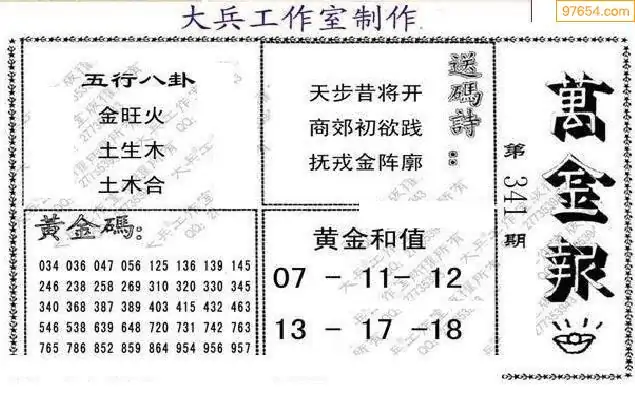 97654.com
大兵工作室制作
萬金報
第341期
送碼詩：
天步昔将开
商郊初欲践
抚戎金阵廓
五行八卦
金旺火
土生木
土木合
黃金碼：
034 036 047 056 125 136 139 145
246 238 258 269 310 320 330 345
340 368 387 389 403 415 432 463
546 538 639 648 720 731 742 763
765 786 852 859 864 954 956 957
黄金和值
07 - 11- 12
13 - 17 -18